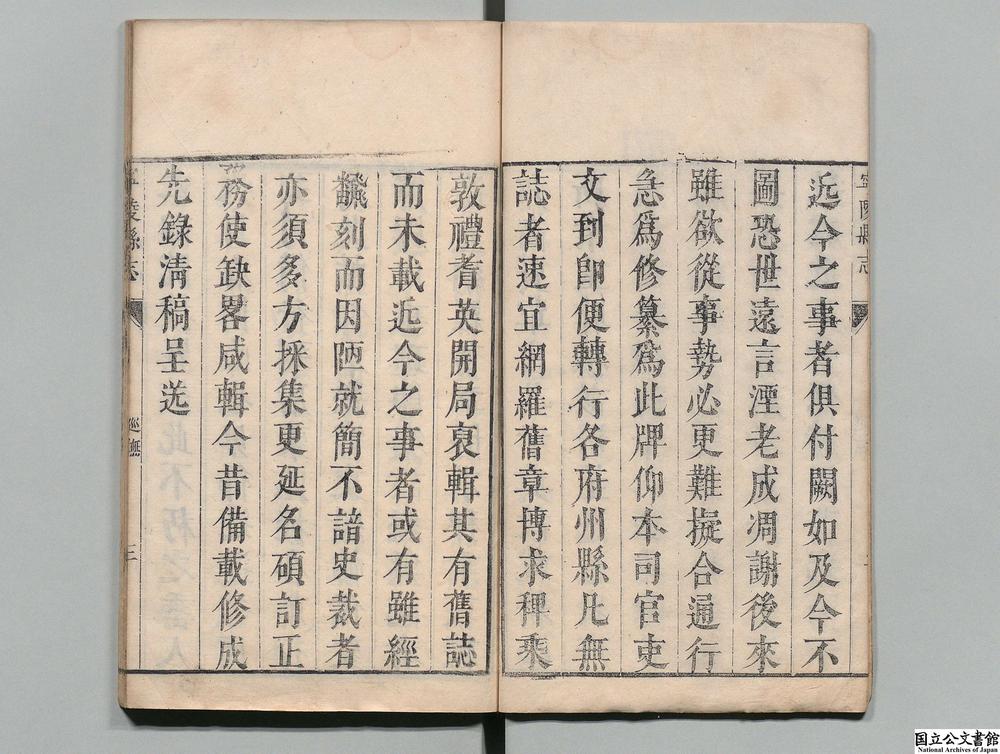 寧陵縣志
近今之事者俱付闕如及今不
圖恐世遠言湮老成凋謝後來
雖欲從事勢必更難擬合通行
急爲修纂爲此牌仰本司官吏
文到卽便轉行各府州縣凡無
誌者速宜網羅舊章博求稗乘
敦禮耆英開局裒輯其有舊誌
而未載近今之事者或有雖經
飜刻而因陋就簡不諳史裁者
亦須多方採集更延名碩訂正
務使缺畧咸輯今昔備載修成
先錄淸稿呈送
寧陵縣志
巡撫
三
国立公文書館
National Archives of Japan